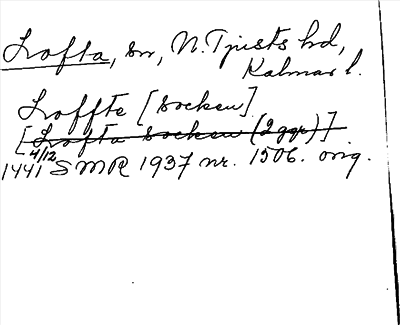 Lofta, sn, N. Tjusts hd,
Kalmar l.
Loffte [socken]
[Lofta socken (2 ggr)]
4/12
1441 SMR 1937 nr. 1506. orig.